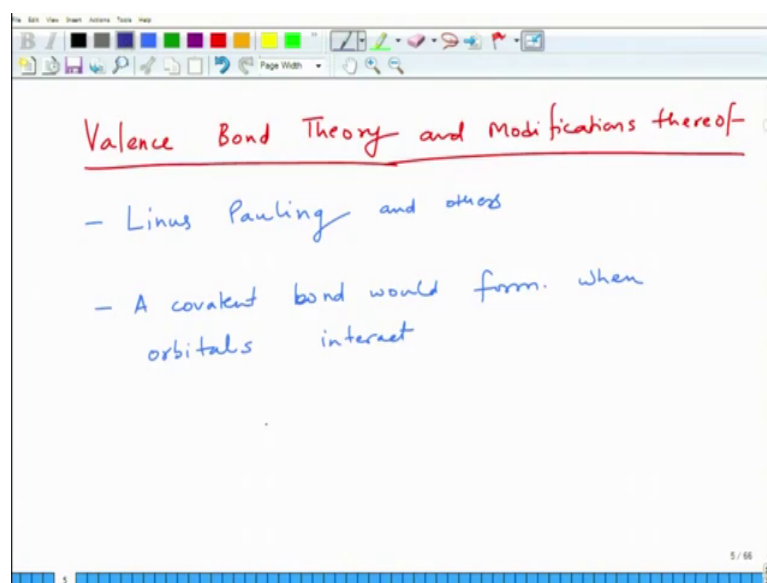 File Edit View Insert Actions Tools Help
B I
Page Width
Valence Bond Theory and Modifications thereof
– Linus Pauling and others
– A covalent bond would form. when
orbitals interact
5 / 66
5